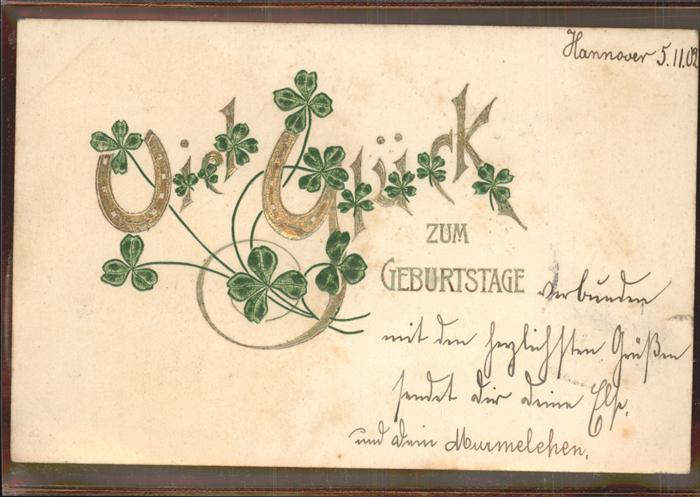 Hannover 5.11.02
Viel Glück
ZUM
GEBURTSTAGE verbunden
mit den herzlichsten Grüßen
sendet dir deine Else.
und dein Murmelchen.